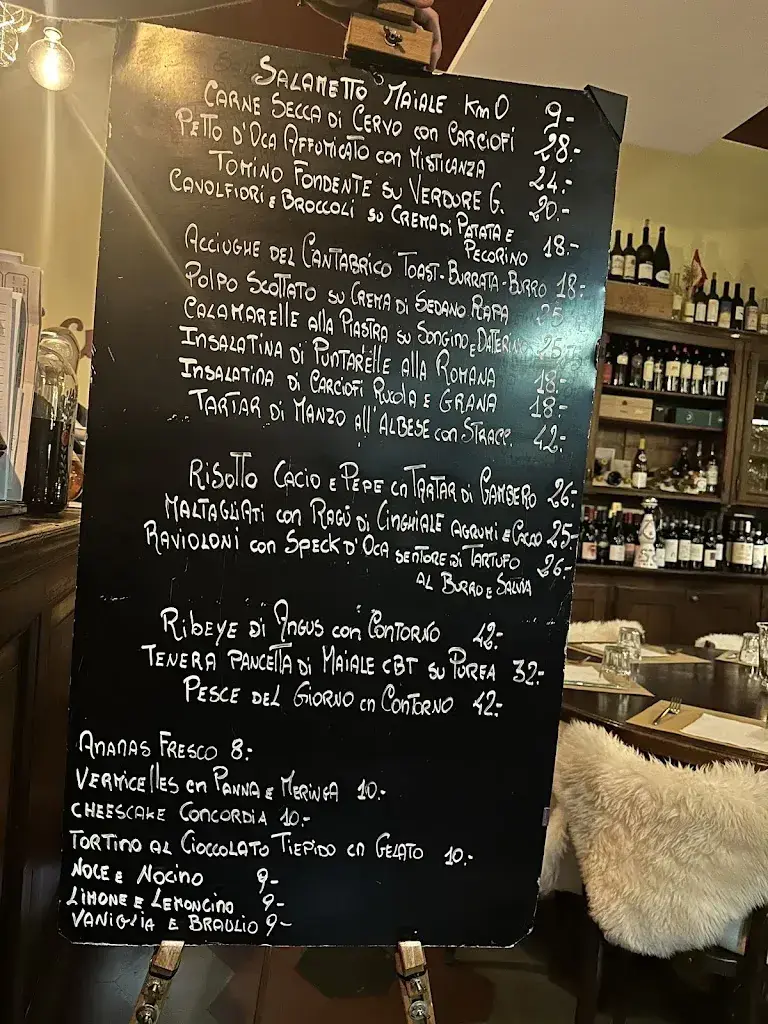 SALAMETTO MAIALE Km0 9-
CARNE SECCA DI CERVO con CARCIOFI 28.-
PETTO D'OCA AFFUMICATO con MISTICANZA 24.-
TOMINO FONDENTE SU VERDURE G. 20.-
CAVOLFIORI E BROCCOLI SU CREMA DI PATATA E
PECORINO 18.-
ACCIUGHE DEL CANTABRICO TOAST-BURRATA-BURRO 18:-
POLPO SCOTTATO SU CREMA DI SEDANO RAPA 25
CALAMARELLE ALLA PIASTRA SU SONGINO E DATERINO 25:-
INSALATINA DI PUNTARELLE ALLA ROMANA 18.-
INSALATINA DI CARCIOFI RUCOLA E GRANA 18:-
TARTAR DI MANZO ALL'ALBESE con STRACC. 42:-
RISOTTO CACIO E PEPE cn TARTAR DI GAMBERO 26:-
MALTAGLIATI con RAGÙ DI CINGHIALE AGRUMI E CACAO 25:-
RAVIOLONI con SPECK D'OCA SENTORE DI TARTUFO 26:-
AL BURRO E SALVIA
RIBEYE DI ANGUS con CONTORNO 42:-
TENERA PANCETTA DI MAIALE CBT SU PUREA 32:-
PESCE DEL GIORNO cn CONTORNO 42:-
ANANAS FRESCO 8:-
VERMICELLES cn PANNA E MERINGA 10.-
CHEESCAKE CONCORDIA 10.-
TORTINO AL CIOCCOLATO TIEPIDO cn GELATO 10.-
NOCE E NOCINO 9-
LIMONE E LEMONCINO 9-
VANIGLIA E BRAULIO 9-